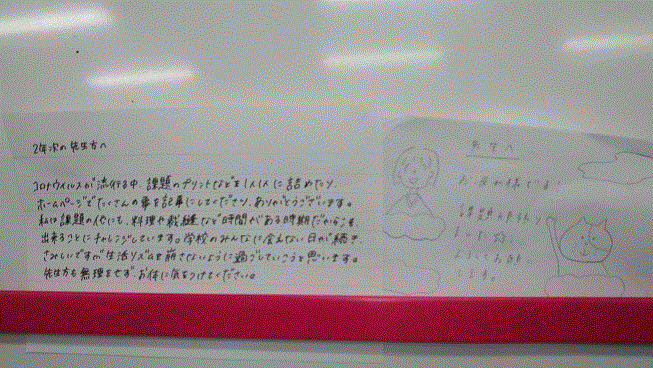 2年次の先生方へ
コロナウイルスが流行る中、課題のプリントなどを1人1人に詰めたり、
ホームページでたくさんの事を記事にしてくださり、ありがとうございます。
私は課題の他にも、料理や裁縫など時間がある時期だからこそ、
出来ることにチャレンジしています。学校のみんなに会えない日が続き、
さみしいですが生活リズムを崩さないように過ごしていこうと思います。
先生方も無理をせず、お体に気をつけてください。
先生へ
お疲れ様です!